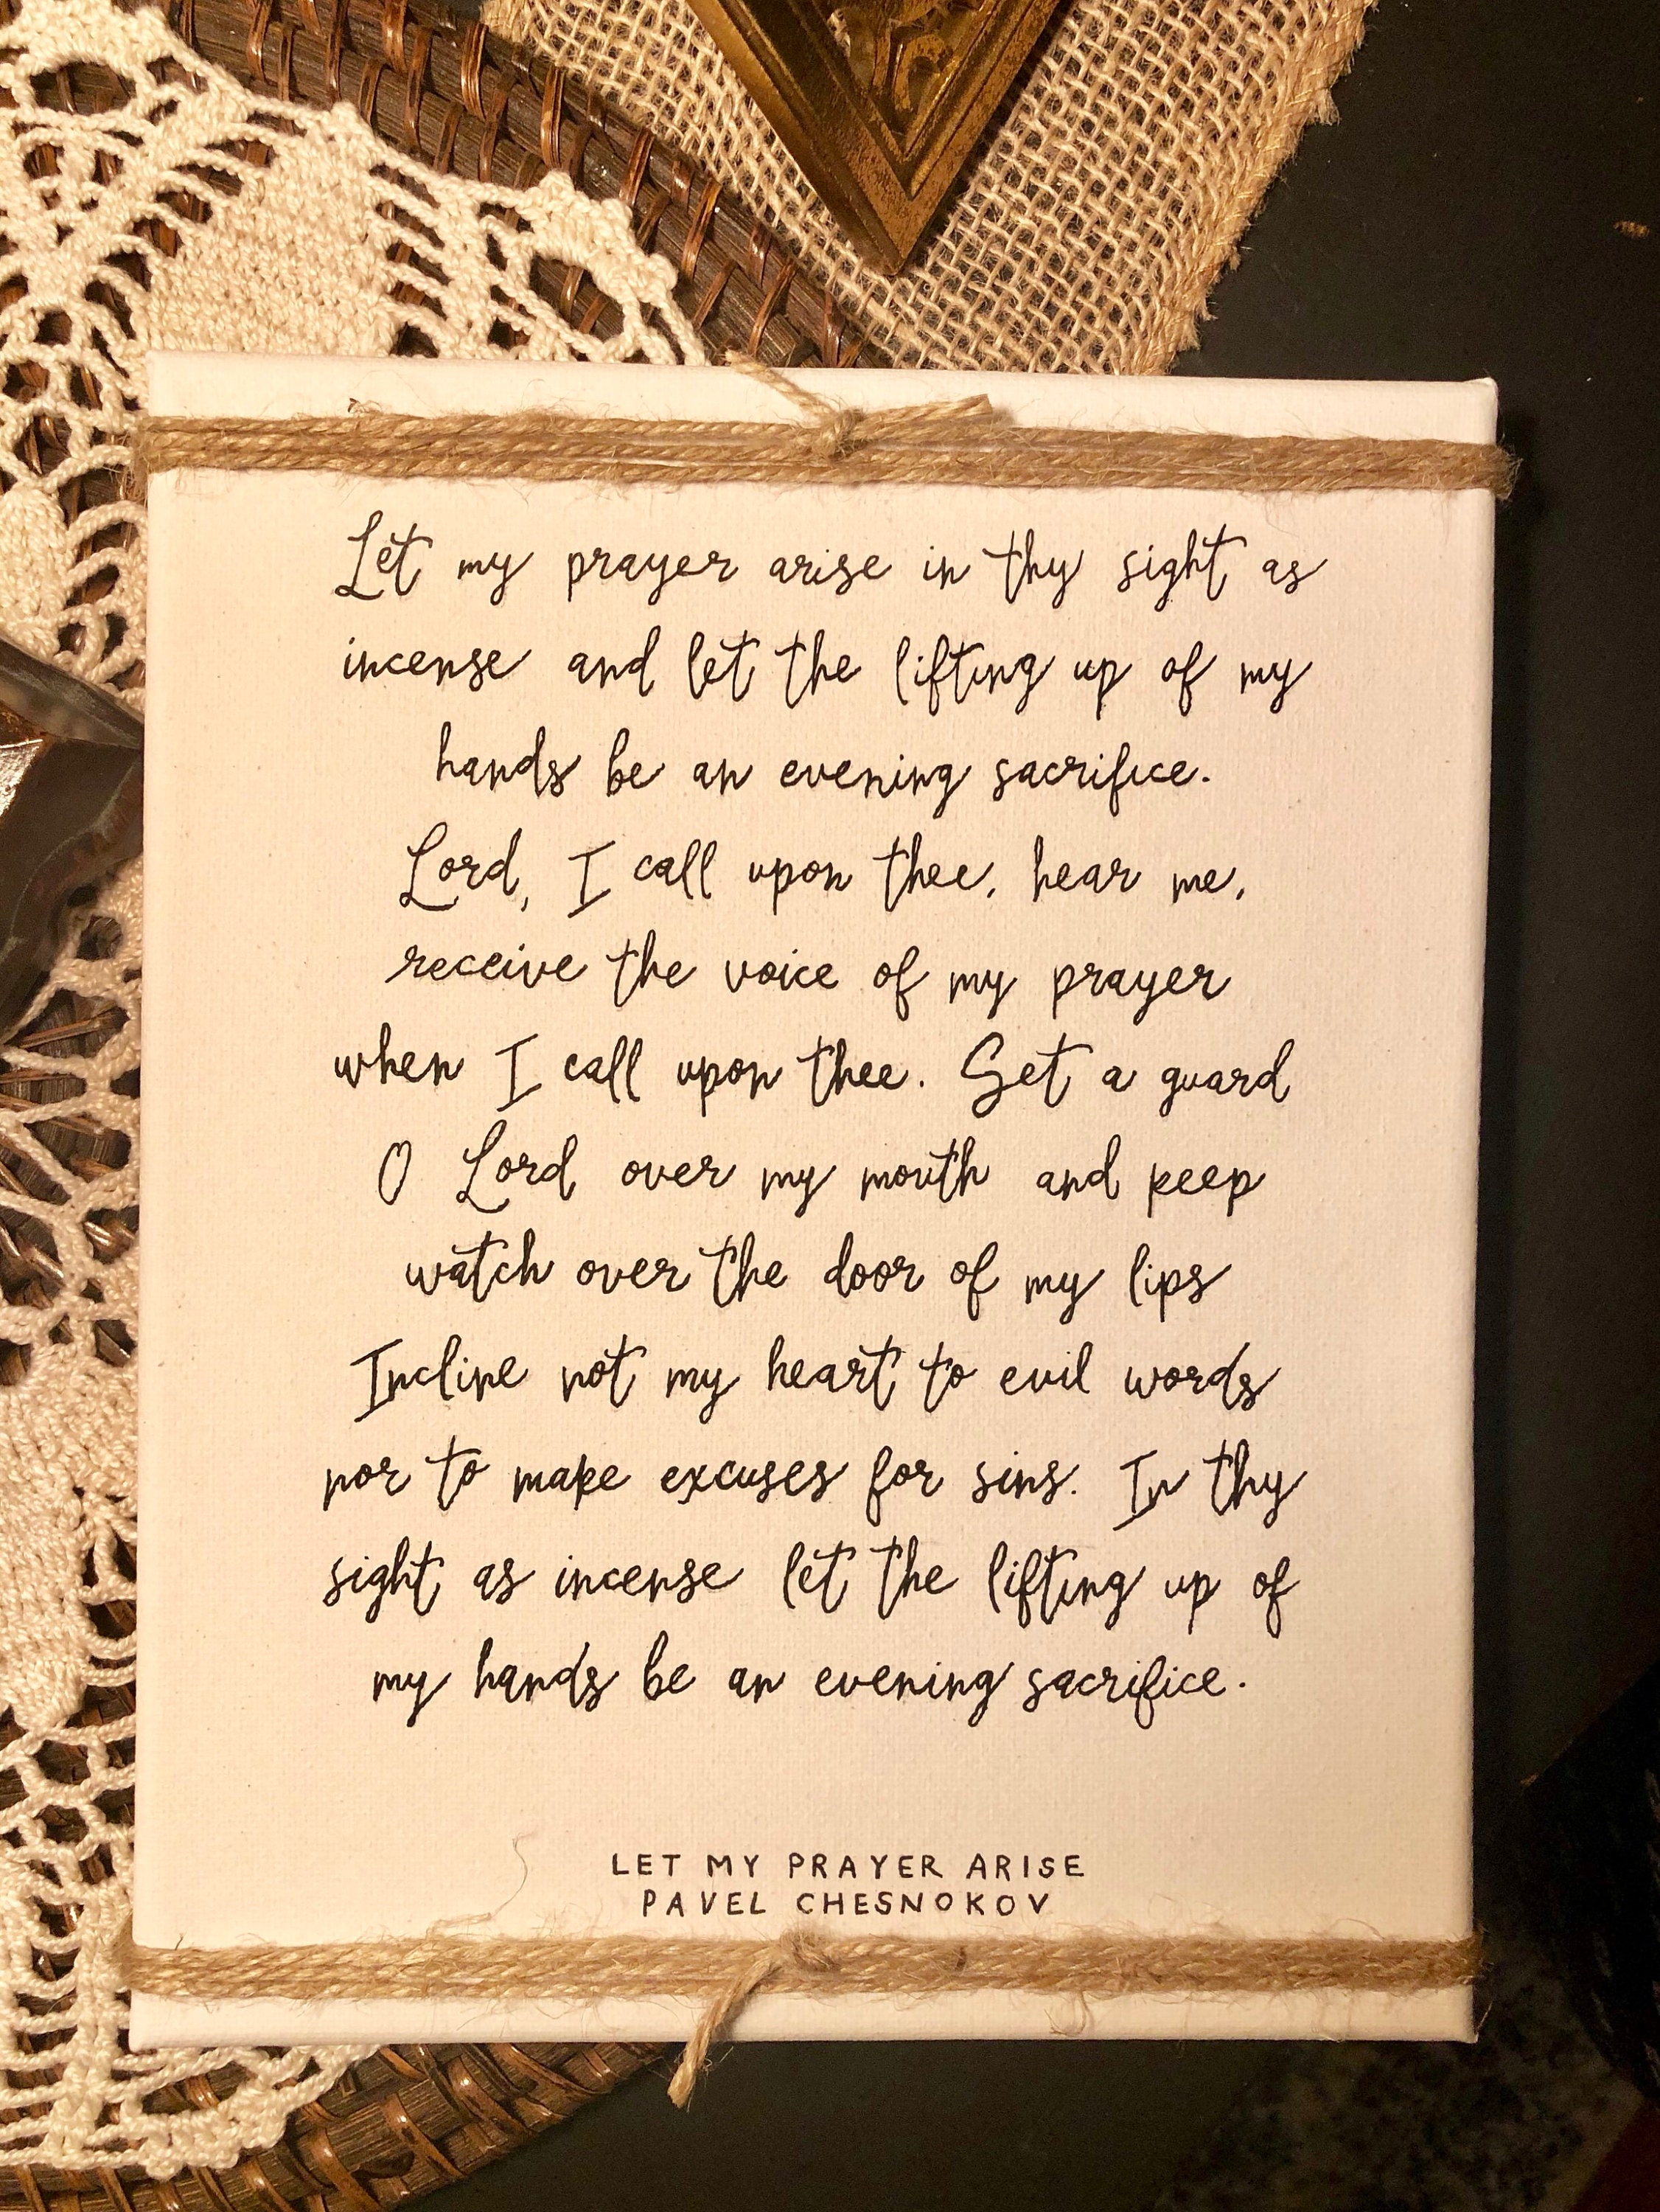 Let my prayer arise in thy sight as
incense and let the lifting up of my
hands be an evening sacrifice.
Lord, I call upon thee, hear me,
receive the voice of my prayer
when I call upon thee. Set a guard
O Lord over my mouth and keep
watch over the door of my lips
Incline not my heart to evil words
nor to make excuses for sins. In thy
sight as incense let the lifting up of
my hands be an evening sacrifice.
LET MY PRAYER ARISE
PAVEL CHESNOKOV